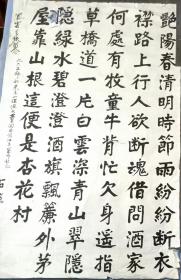 艷陽春清明時節雨紛紛断衣
襟路上行人欲断魂借問酒家
何處有牧童牛背忙欠身遥指
草橋道一片白雲深青山翠隱
隱緑水碧澄澄酒旗飄簾外茅
屋靠山根這便是杏花村